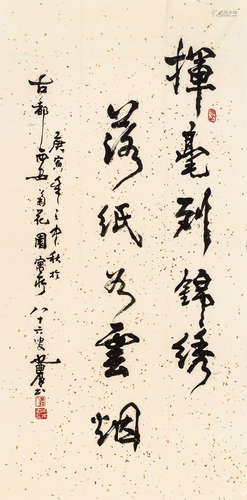 揮毫列錦綉
落紙若雲烟
庚寅年之中秋於
古都西安菊花園寓所 八十六叟